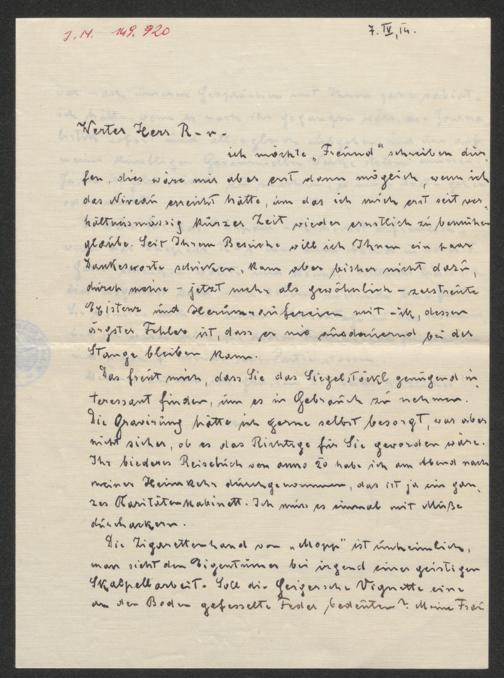 J. N. 149.920
7. IV. 
Werter Herr R-n.
ich möchte „Freund" schreiben dür-
fen, dies wäre mir aber erst dann möglich, wenn ich
das Niveau erreicht hätte, um das ich mich erst seit ver-
hältnismässig kurzer Zeit wieder ernstlich zu bemühen
glaube. Seit Ihrem Besuche will ich Ihnen ein paar
Dankesworte schicken, kam aber bisher nicht dazu,
durch meine - jetzt mehr als gewöhnlich - zerstreute
Existenz und mit - ich, dessen
ärgster Fehler ist, dass er nie ausdauernd bei der
Stange bleiben kann.
Das freut mich, dass Sie das Siegelstöckl genügend in-
teressant finden, um es in Gebrauch zu nehmen.
Die Gravierung hätte ich gerne selbst besorgt, war aber
nicht sicher, ob es das Richtige für Sie geworden wäre.
Ihr biederes Reisebuch von anno 20 habe ich am Abend nach
meiner Heimkehr durchgenommen, das ist ja ein gan-
zes Raritätenkabinett. Ich muss es einmal mit Muße
durchackern.
Die Zigarettenhand von „Mopp" ist unheimlich,
man sieht den Eigentümer bei irgend einer geistigen
Skalpellarbeit. Soll die Geigersche Vignette eine
an den Boden gefesselte Feder bedeuten? Meine Frau